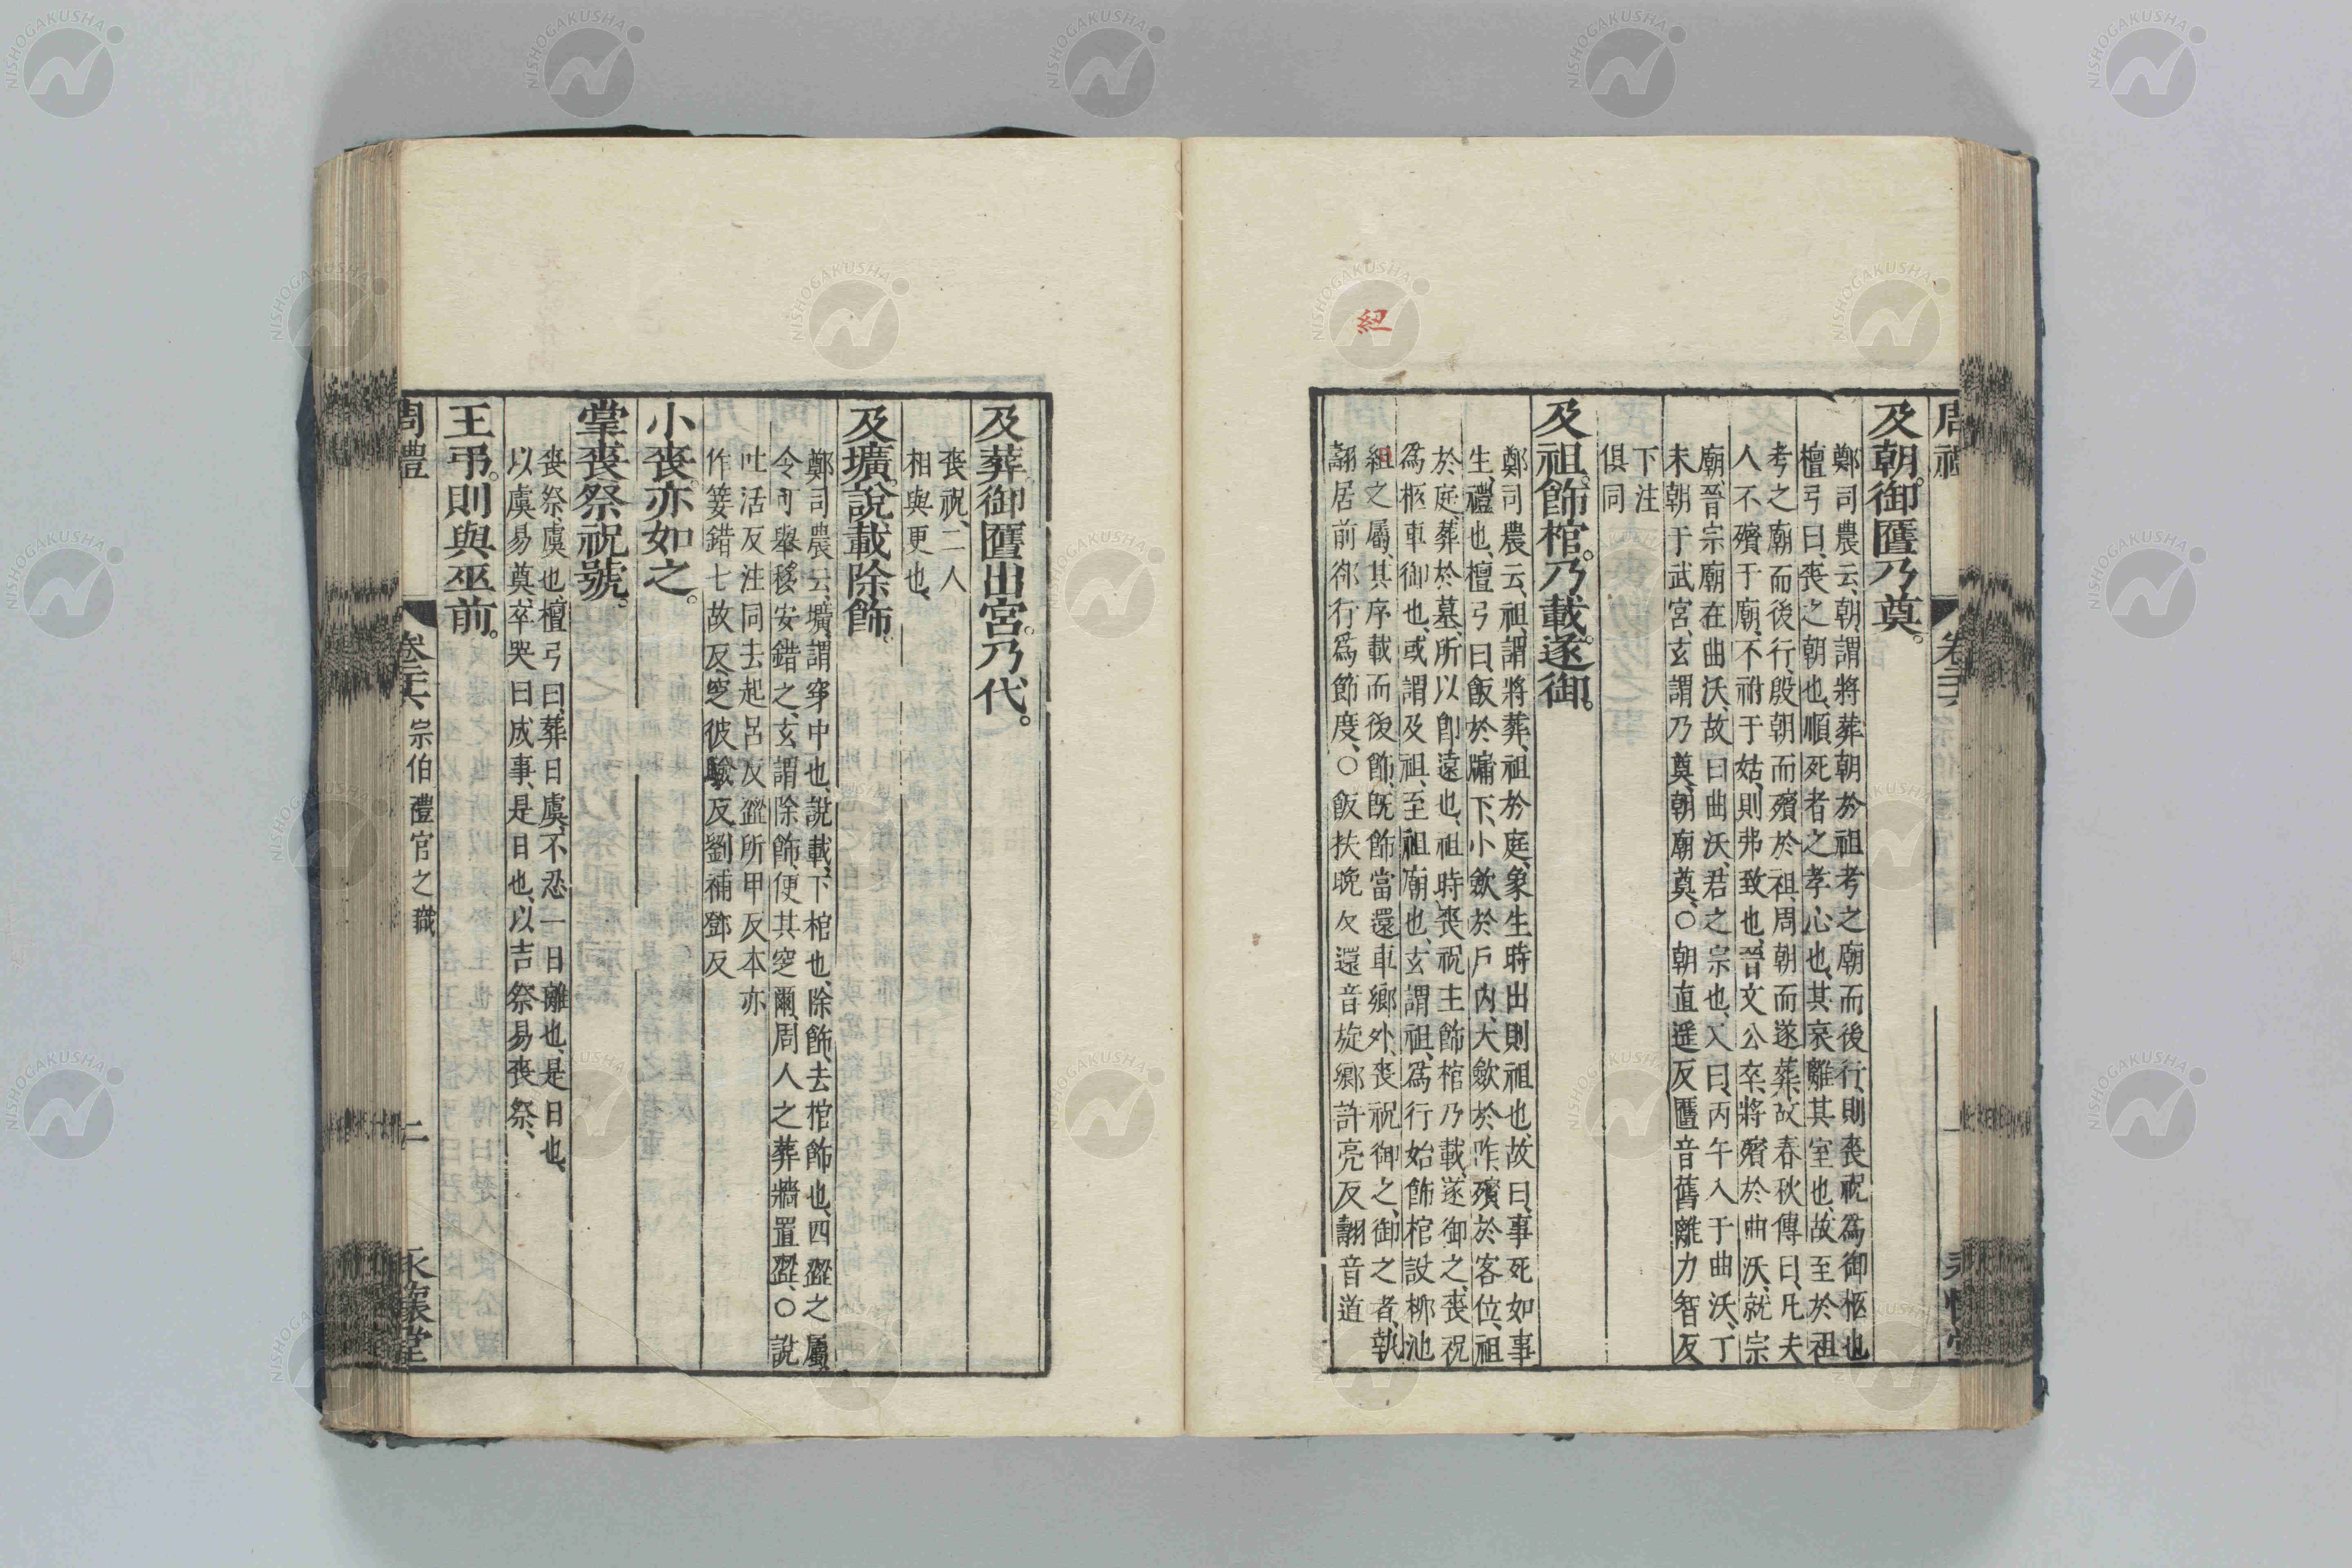 紐
周禮
卷二十六
及朝。御匶乃奠。
鄭司農云、朝謂將葬朝於祖考之廟而後行、則喪祝爲御柩也、
檀弓曰、喪之朝也、順死者之孝心也、其哀離其室也、故至於祖
考之廟而後行、殷朝而殯於祖、周朝而遂葬、故春秋傳曰、凡夫
人不殯于廟、不祔于姑、則弗致也、晉文公卒、將殯於曲沃、就宗
廟、晉宗廟在曲沃、故曰曲沃、君之宗也、又曰、丙午入于曲沃、丁
未朝于武宮、玄謂乃奠、朝廟奠、○朝直遥反匶音舊離力智反
下注
俱同
及祖。飾棺。乃載。遂御。
鄭司農云、祖、謂將葬、祖於庭、象生時出則祖也、故曰、事死如事
生、禮也、檀弓曰、飯於牖下、小歛於戶內、大歛於阼、殯於客位、祖
於庭、葬於墓、所以卽遠也、祖時、喪祝主飾棺乃載、遂御之、喪祝
爲柩車御也、或謂及祖、至祖廟也、玄謂祖、爲行始飾棺設桺池
紐之屬、其序載而後飾、旣飾當還車鄉外、喪祝御之、御之者、執
翿居前卻行爲節度、○飯扶晚反還音旋鄉許亮反翿音道
及葬御匶出宮。乃代。
喪祝、二人
相與更也、
及壙。說載除飾。
鄭司農云、壙、謂穿中也、說載、下棺也、除飾、去棺飾也、四歰之屬、
令可舉移安錯之、玄謂除飾、便其窆爾、周人之葬牆置歰、○說
吐活反注同去起呂反歰所甲反本亦
作萋錯七故反窆彼驗反劉補鄧反
小喪。亦如之。
掌喪祭祝號。
喪祭虞也、檀弓曰、葬日虞、不忍一日離也、是日也、
以虞易奠、卒哭曰成事、是日也、以吉祭易喪祭、
王弔。則與巫前。
周禮
卷二十六
宗伯禮官之職
二
永懷堂